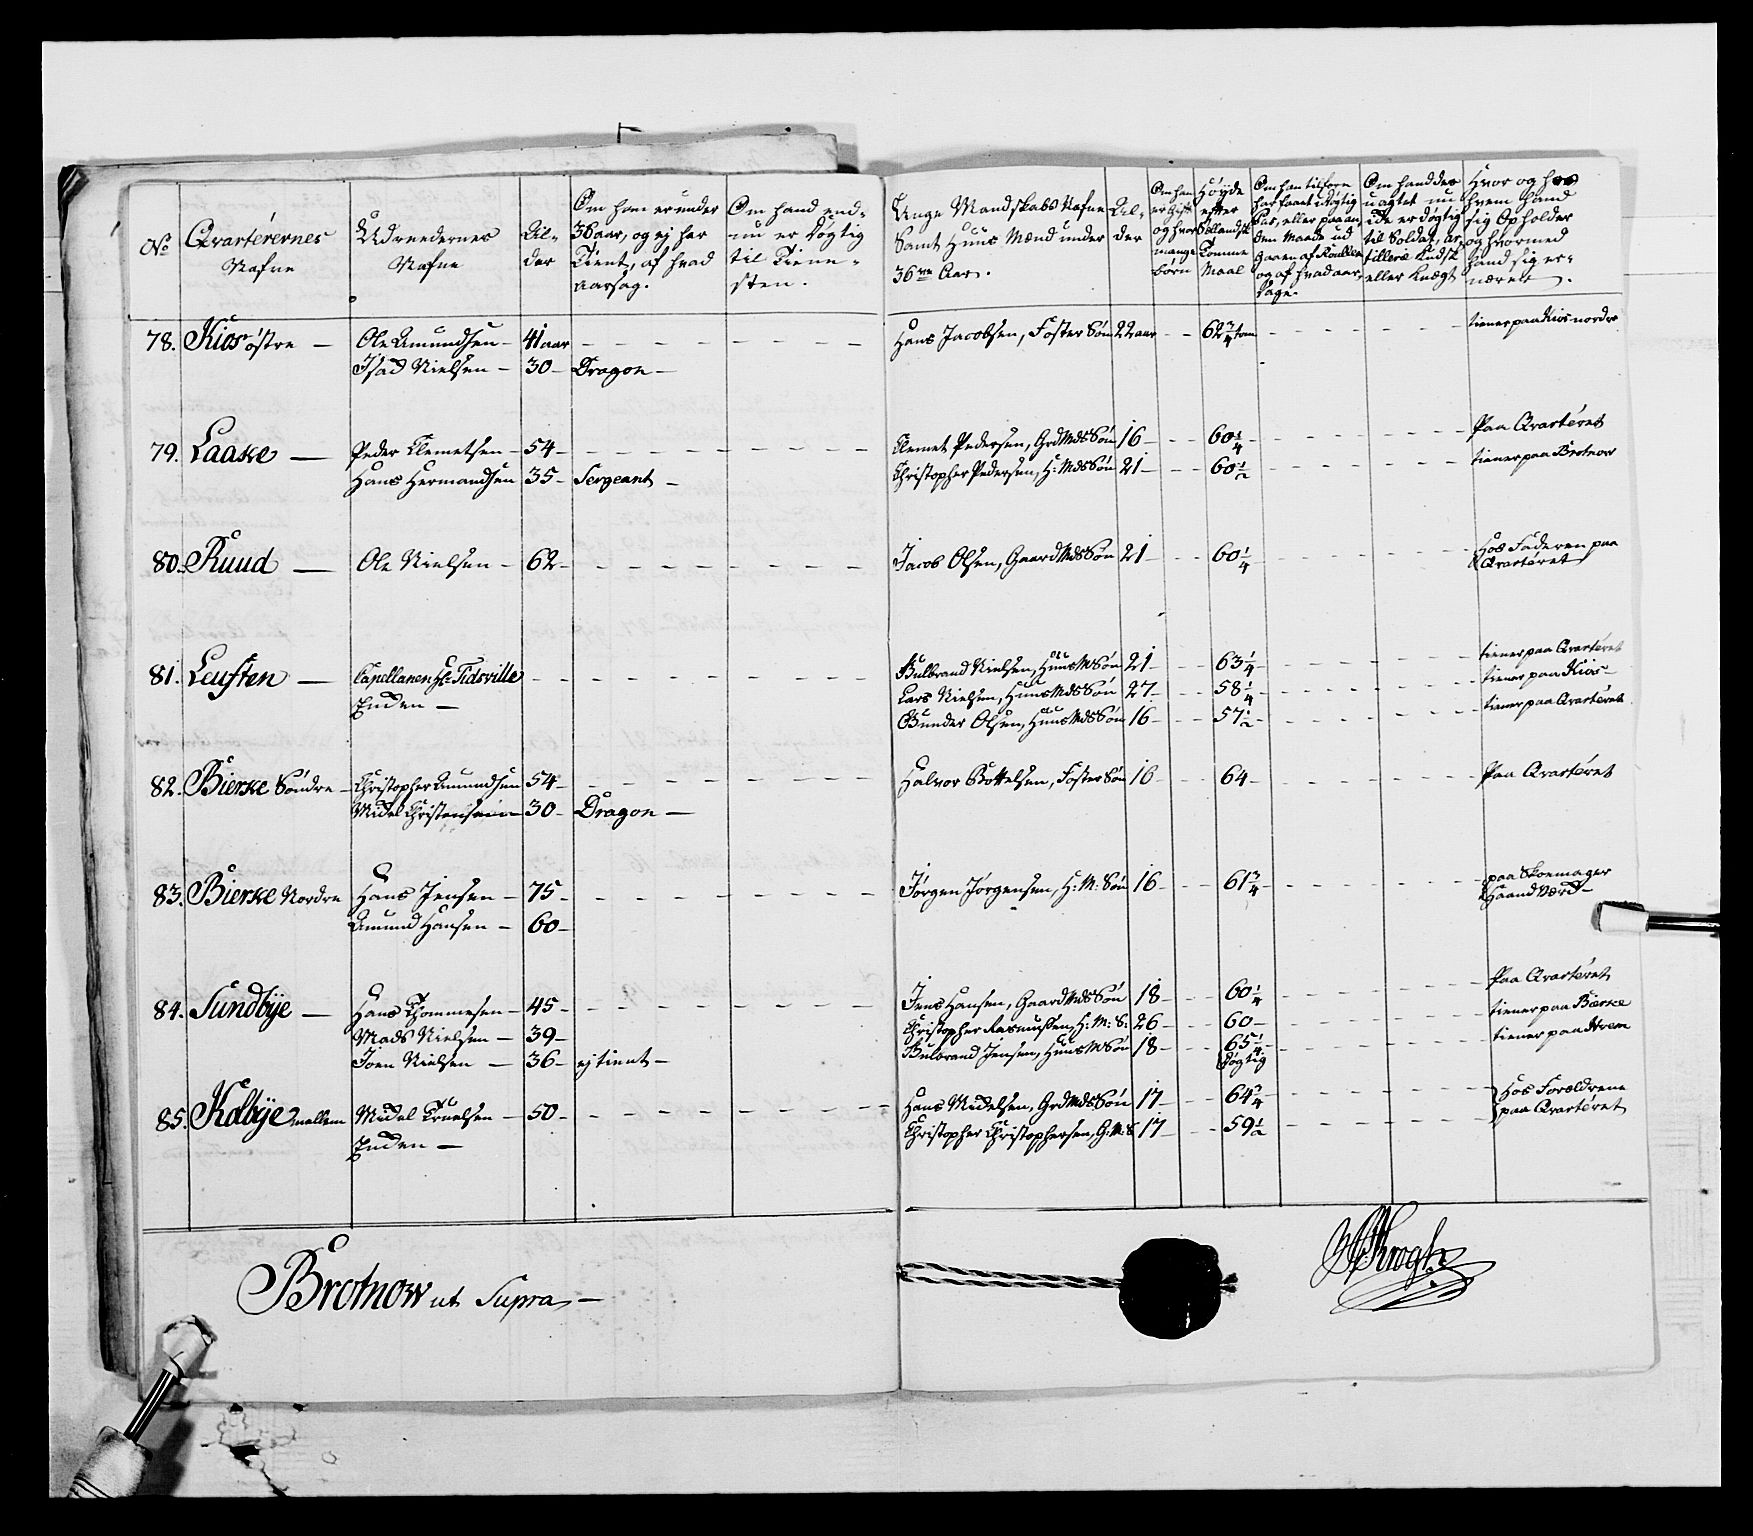 No
Qvarterernes
Nafne
Udreedernes
Nafne
Al-
der
Om han er under
36 aar, og ej har
Tient, af hvad
aarsag.
Om hand end-
nu er Døgtig
til Tiene-
sten.
Unge Mandskabs Nafne
Samt Huus Mænd under
36te Aar.
Al-
der
Om han
er Gift
og hvor
mange
børn
Høyde
efter
Sællandsk
Tomme
Maal
Om han tilforn
har faaet udygtig
Pas, eller paa an-
den Maade ud
gaaen af Roullen
og af hvad aar-
sage.
Om hand des
uagtet nu
ikke er døgtig
til Soldat, Ar-
tillerie Kudsk
eller Knægt
Hvor og hos
hvem hand
sig Opholder
og hvormed
hand sig er-
nærer.
78. Kios østre — Ole Amundsen — 41 aar — Hans Jacobsen, Foster Søn 22 aar — 62 3/4 tom — tiener paa Kios nordre
Nielsen — 30 — Dragon —
79. Laake — Peder Clemetsen — 54 — Clemet Pedersen, Grd Mds Søn 16 — 60 1/4 — Paa Qvarteret
Hans Hermandsen 35 — Sergeant — Christopher Pedersen, H: Mds Søn 21 — 60 1/2 — tiener paa Brotnow
80. Ruud — Ole Nielsen — 62 — Jacob Olsen, Gaard Mds Søn 21 — 60 1/4 — Hos Faderen paa
Qvarteret
81. Leusten — Capellanen Hr Tidsville — Gulbrand Nielsen, Huus M Søn 21 — 63 1/4 — tiener paa Qvarteret
Enden — Lars Nielsen, Huus Mds Søn 27 — 58 1/4 — tiener paa Kios —
Gunder Olsen, Huus Mds Søn 16 — 57 1/2 — tiener paa Qvarteret
82. Bierke Søndre — Christopher Amundsen 54 — Halvor Bottelsen, Foster Søn 16 — 64 — Paa Qvarteret
Mickel Christensen — 30 — Dragon —
83. Bierke Nordre Hans Jensen — 75 — Jørgen Jørgensen, H: M: Søn 16 — 61 3/4 — paa Skoemager
Haandværk —
Amund Hansen — 60 —
84. Sundbÿe — Hans Thommesen — 45 — Jens Hansen, Gaard Mds Søn 18 — 60 1/4 — Paa Qvarteret
Mads Nielsen — 39 — Christopher Rasmussen, H: M: S: 26 — 60 — tiener paa Bærke
Joen Nielsen — 36 — ej tient — Gulbrand Jensen, Huus M Søn 18 — 65 1/4 — tiener paa
Døgtig
85. Kolbÿe mellem Mickel Truelsen — 50 — Hans Mickelsen, Grd Mds Søn 17 — 64 3/4 — Hos Forældrene
Enden — Christopher Christophersen, G: M: S 17 — 59 1/2 — paa Qvarteret
Brotnow ut Supra —
Krogh